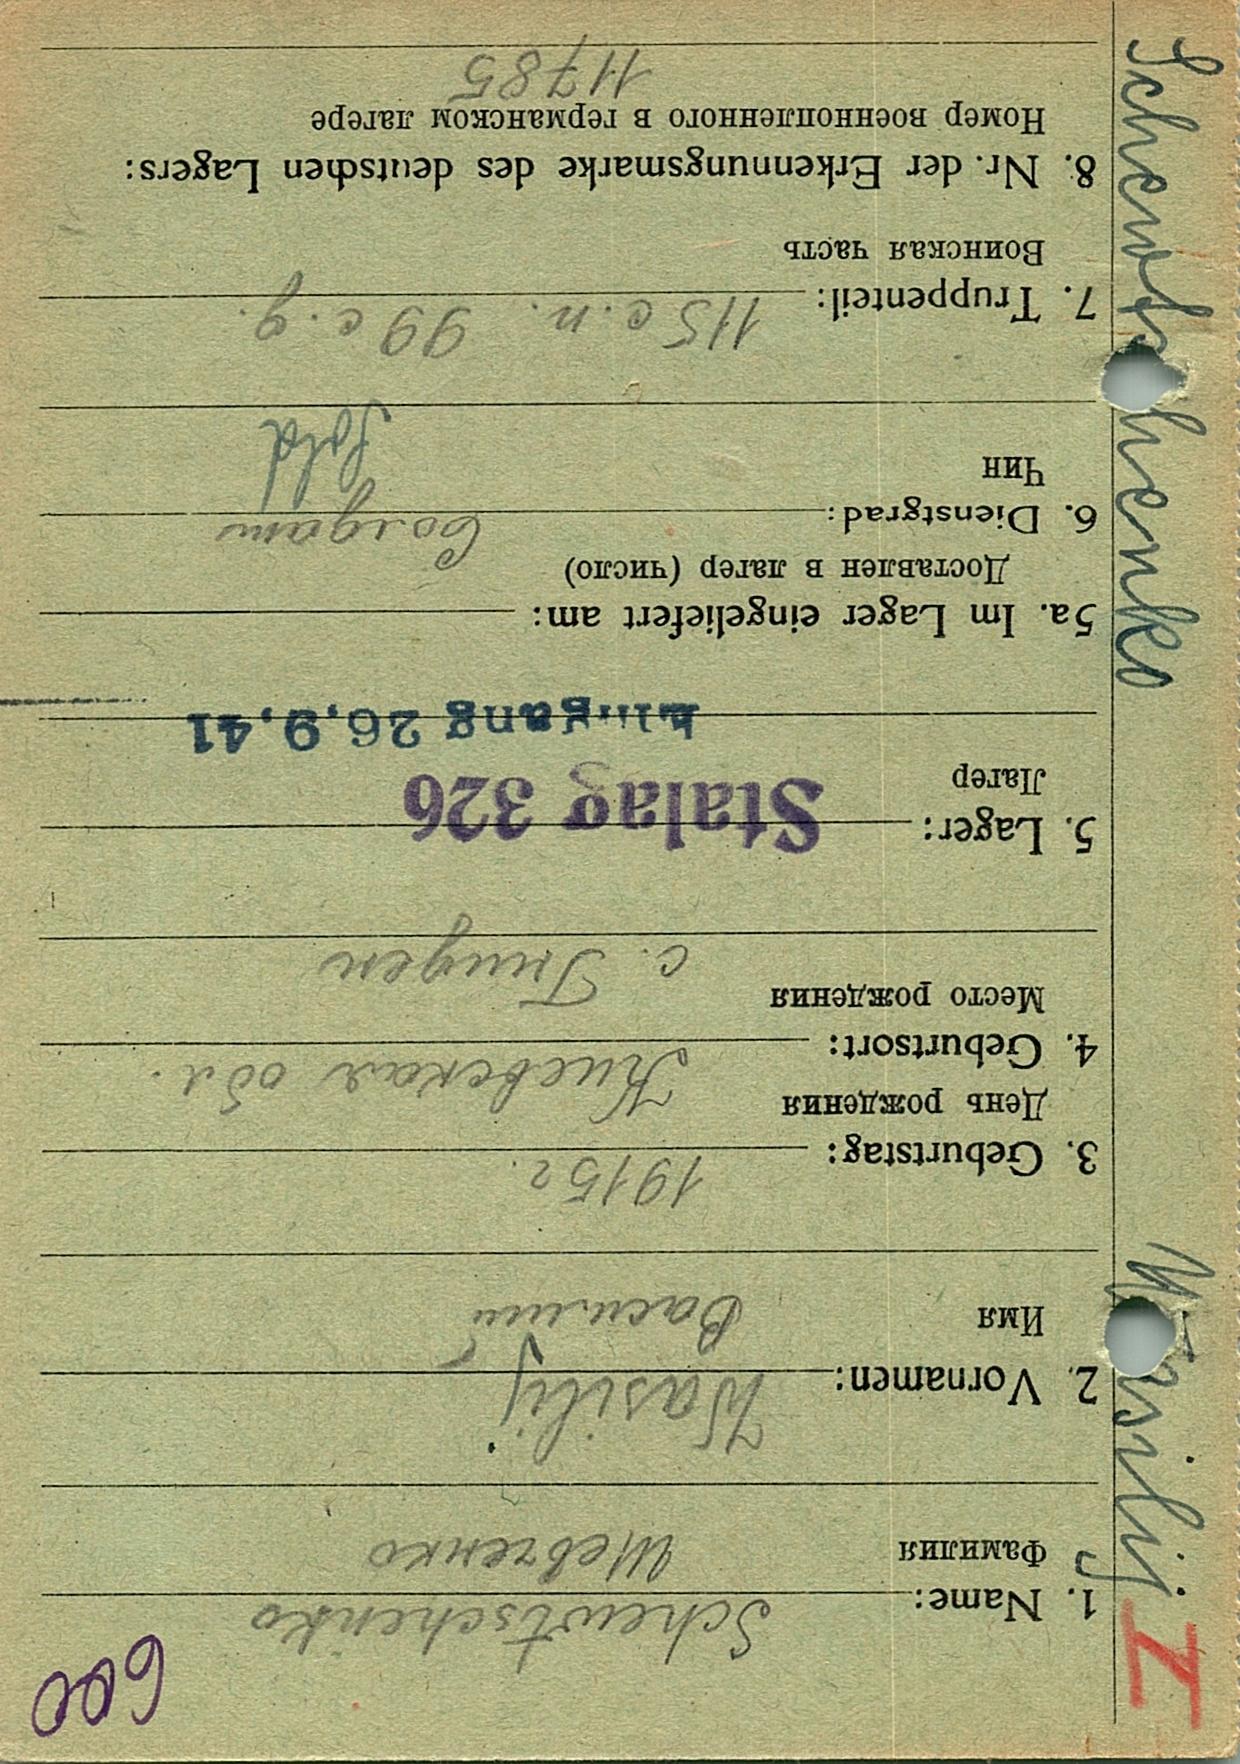 600
I
1. Name: Schewtschenko
Фамилия Шевченко
2. Vornamen: Wasilij
Имя Василий
3. Geburtstag: 1915 г.
День рождения
4. Geburtsort: Киевская обл.
Место рождения
с.
5. Lager: Stalag 326
Лагер
Eingang 26.9.41
5a. Im Lager eingeliefert am:
Доставлен в лагер (число)
6. Dienstgrad: Солдат
Чин Sold
7. Truppenteil: 115 с.п. 99 с.д.
Воинская часть
8. Nr. der Erkennungsmarke des deutschen Lagers:
Номер военнопленного в германском лагере
11785
Schewtschenko Wasilij